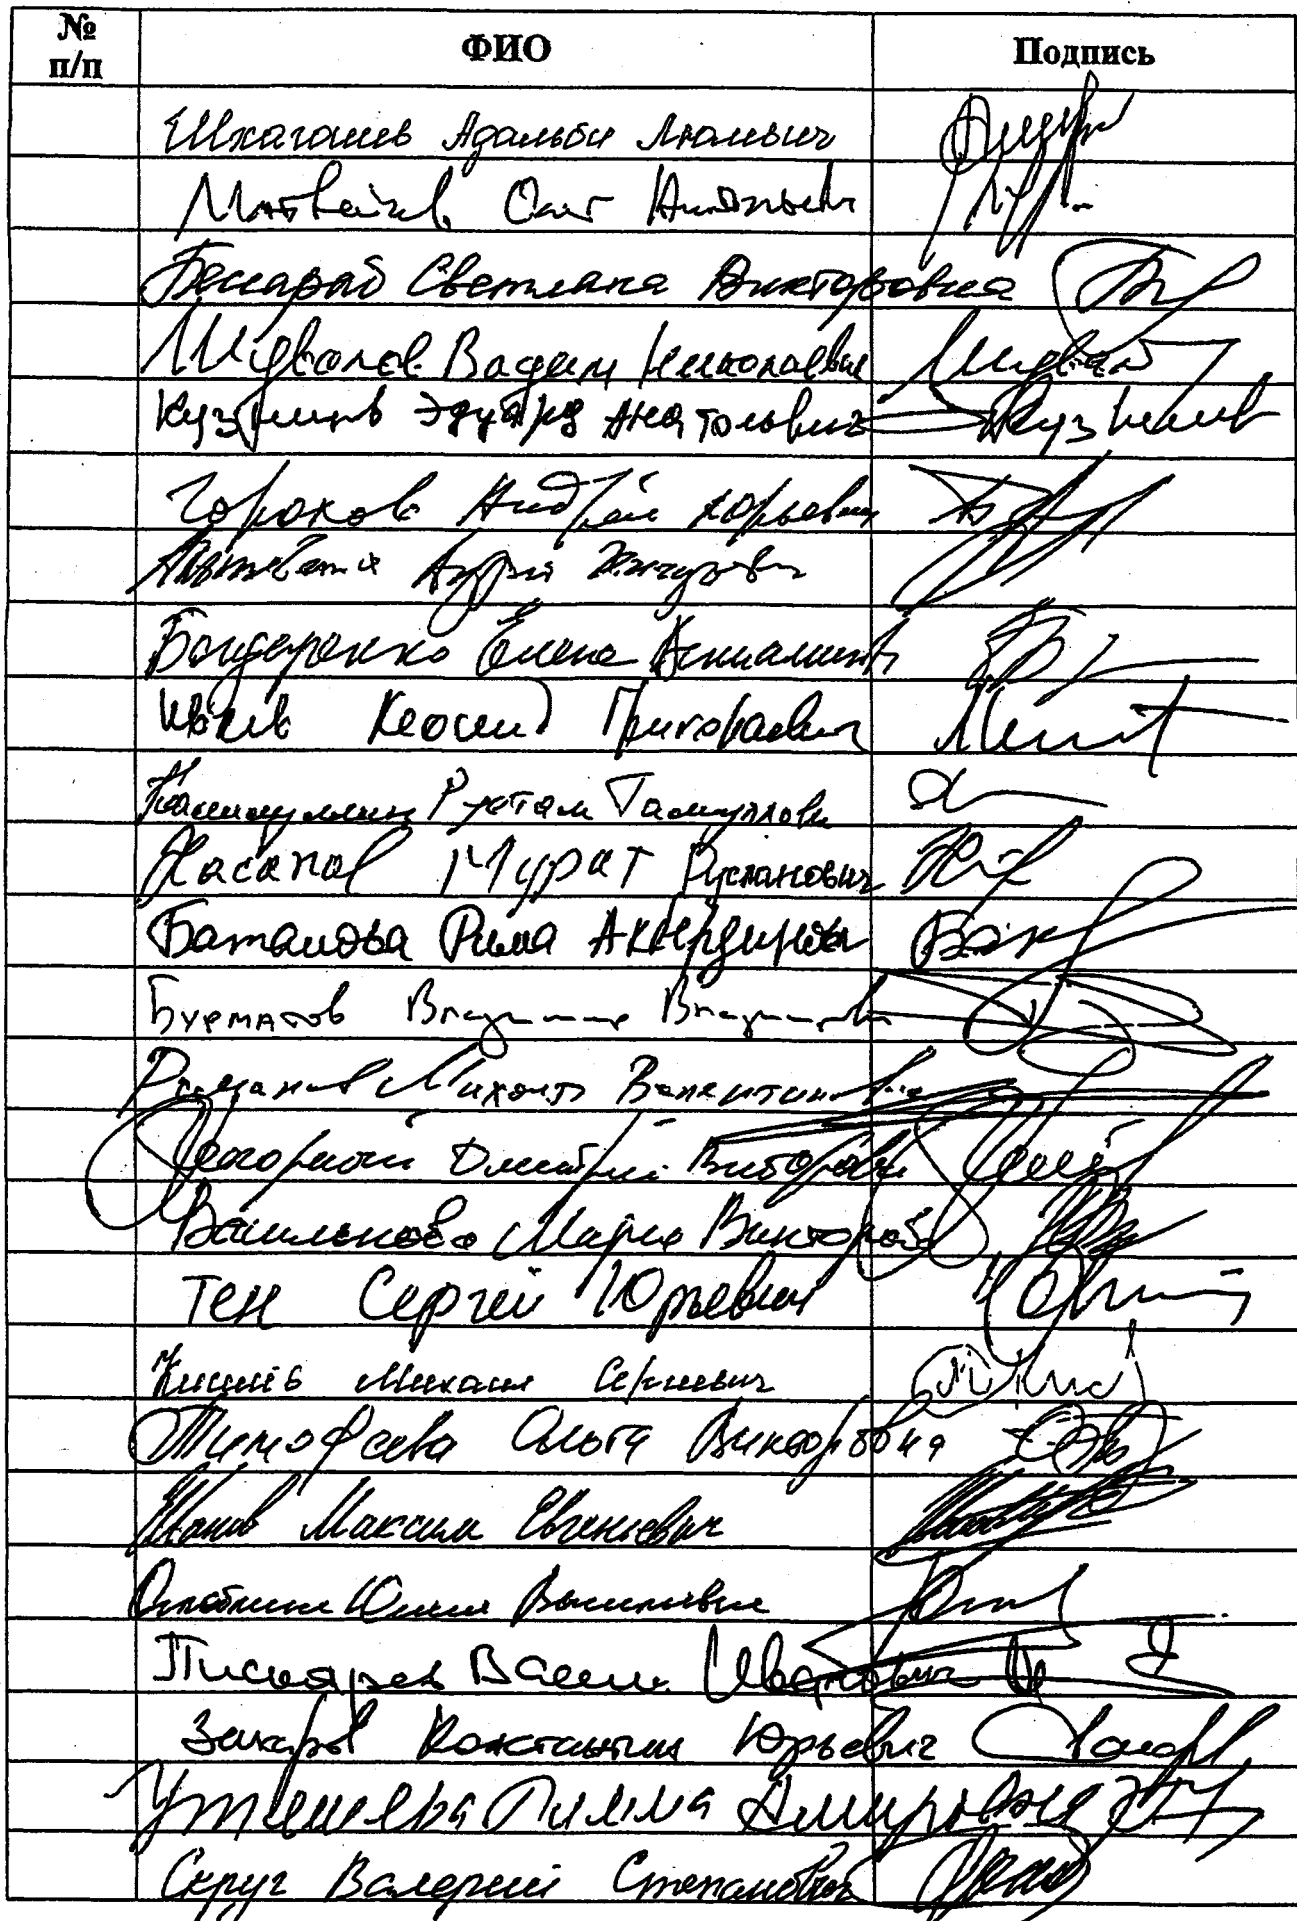 № п/п ФИО Подпись
Шхагошев Адальби Люльевич
Матвейчев Олег Анатольевич
Бессараб Светлана Викторовна
Шувалов Вадим Николаевич
Кузнецов Эдуард Анатольевич Кузнецов
Горохов Андрей Юрьевич
Андрей
Бондаренко Елена Вениаминов
Ивлев Леонид Григорьевич
Рустам
Хасанов Мурат Русланович
Баталова Рима Акбердинов
Бурматов Владимир Владимирович
Романов Михаил Валентинович
Погорелый Дмитрий Викторович
Василькова Мария Викторов
Тен Сергей Юрьевич
Кизеев Михаил Сергеевич
Тимофеева Ольга Викторовна
Иванов Максим Евгеньевич
Юлия Васильевна
Пискарев Васили Иванович
Захаров Константин Юрьевич
Утяшева Римма Амировна
Скруг Валерий Степанович